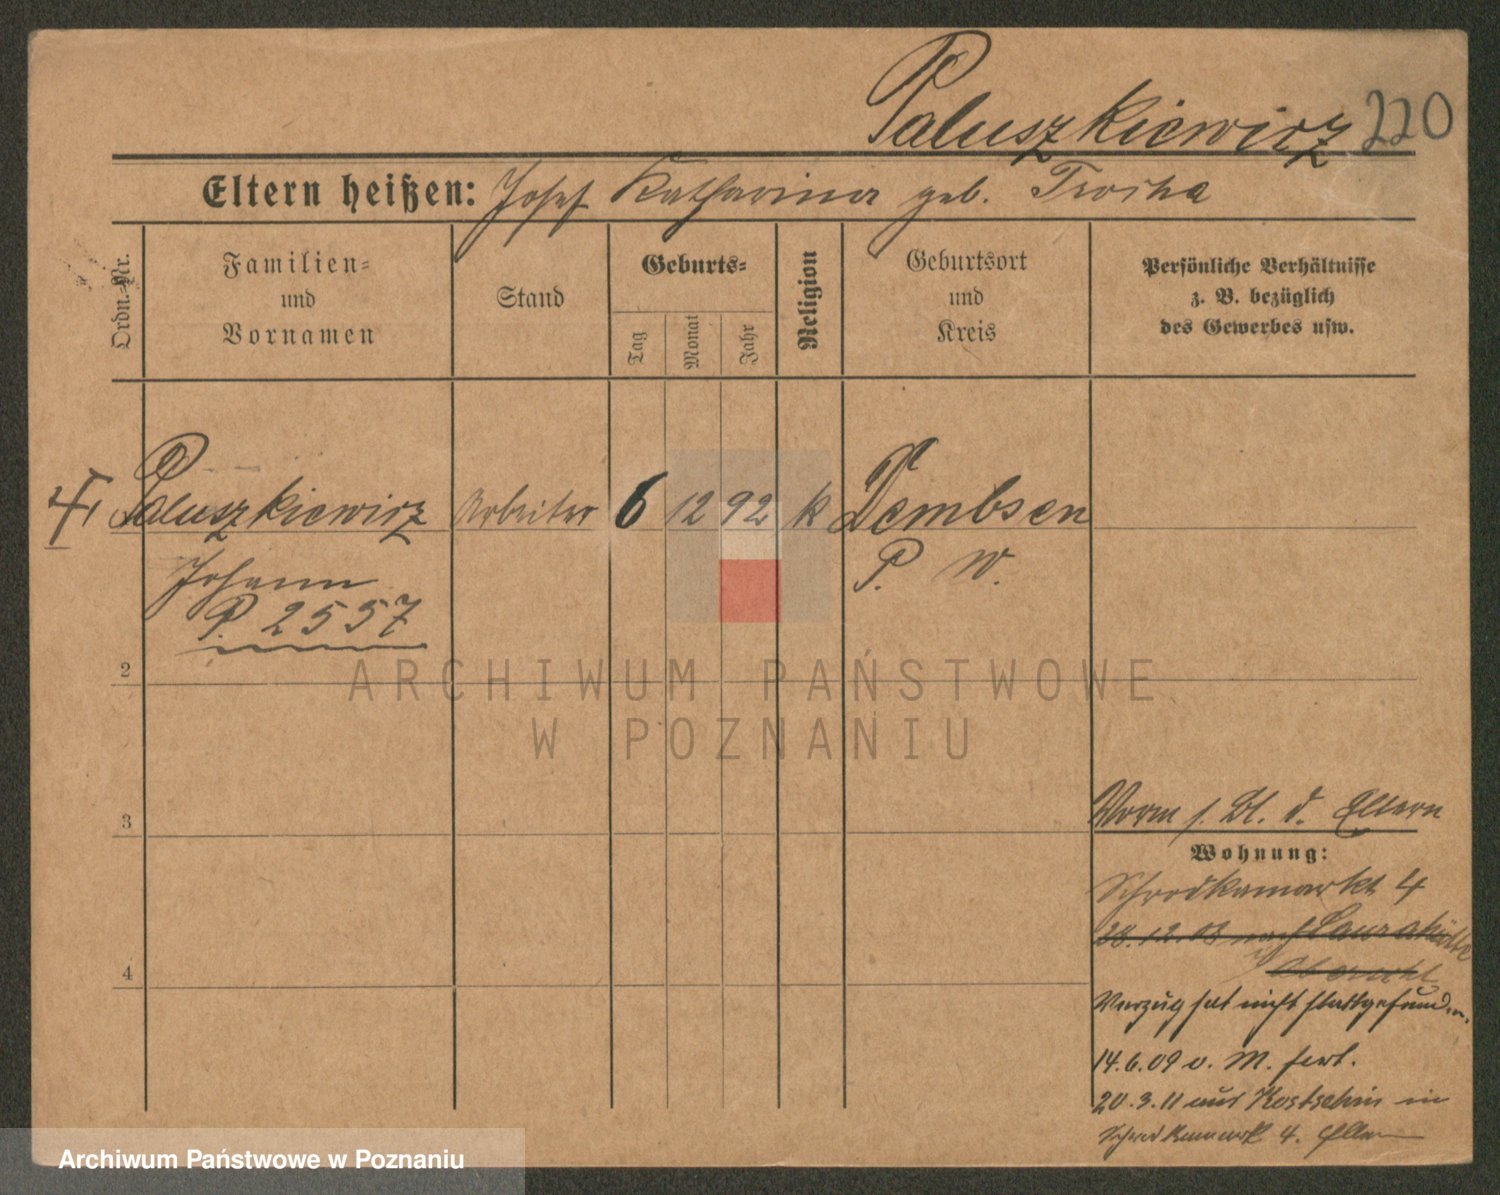 Paluszkiewicz 220
Eltern heißen: Josef Katharina geb. Troska
Ordn.-Nr.
Familien-
und
Vornamen
Stand
Geburts-
Tag
Monat
Jahr
Religion
Geburtsort
und
Kreis
Persönliche Verhältnisse
z. B. bezüglich
des Gewerbes usw.
Paluszkiewicz Arbeiter 6 12 92 k Dembsen
Johann P. W.
P. 2557
2
ARCHIWUM PAŃSTWOWE
W POZNANIU
Vorm s. Bl. d. Eltern
3
Wohnung:
Schrodkamarkt 4
28.12.08 nach Laurahütte
4
Verzug hat nicht stattgefunden.
14.6.09 v. M. fort.
20.3.11 aus Kostschin in
Schrodkamarkt 4. Eltern
Archiwum Państwowe w Poznaniu